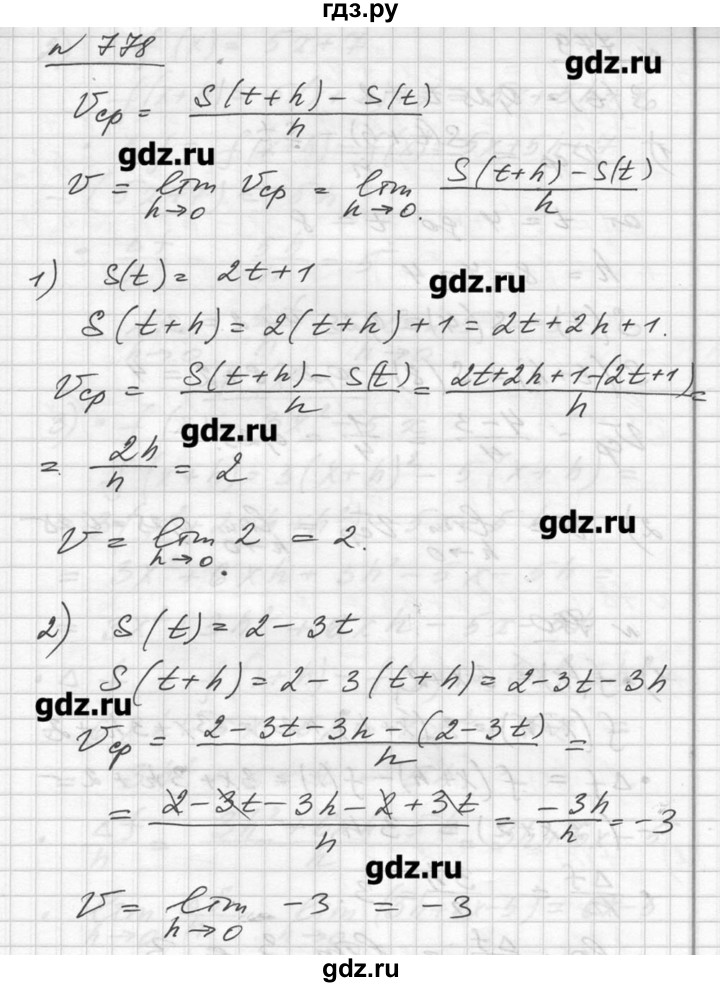 гдз.ру
№ 778
gdz.ru
Vср = (S(t+h) - S(t))/h
gdz.ru
V = lim h→0 Vср = lim h→0. (S(t+h) - S(t))/h
1) S(t) = 2t+1
gdz.ru
S(t+h) = 2(t+h)+1 = 2t+2h+1.
Vср = (S(t+h) - S(t))/h = (2t+2h+1-(2t+1))/h =
gdz.ru
= 2h/h = 2
gdz.ru
V = lim h→0 2 = 2.
2) S(t) = 2-3t
S(t+h) = 2-3(t+h) = 2-3t-3h
gdz.ru
Vср = (2-3t-3h-(2-3t))/h =
= (2-3t-3h-2+3t)/h = -3h/h = -3
gdz.ru
V = lim h→0 -3 = -3
gdz.ru